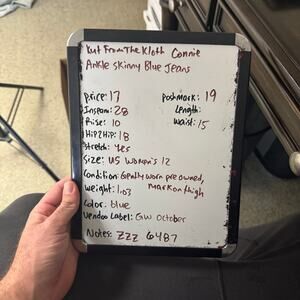 Kut From The Kloth Connie
Ankle Skinny Blue Jeans
Price: 17 Poshmark: 19
Inseam: 28 Length:
Rise: 10 Waist: 15
Hip2Hip: 18
Stretch: Yes
Size: US Women's 12
Condition: Gently worn preowned,
mark on thigh
Weight: 1.03
Color: blue
Vendoo Label: GW October
Notes: ZZZ 6487